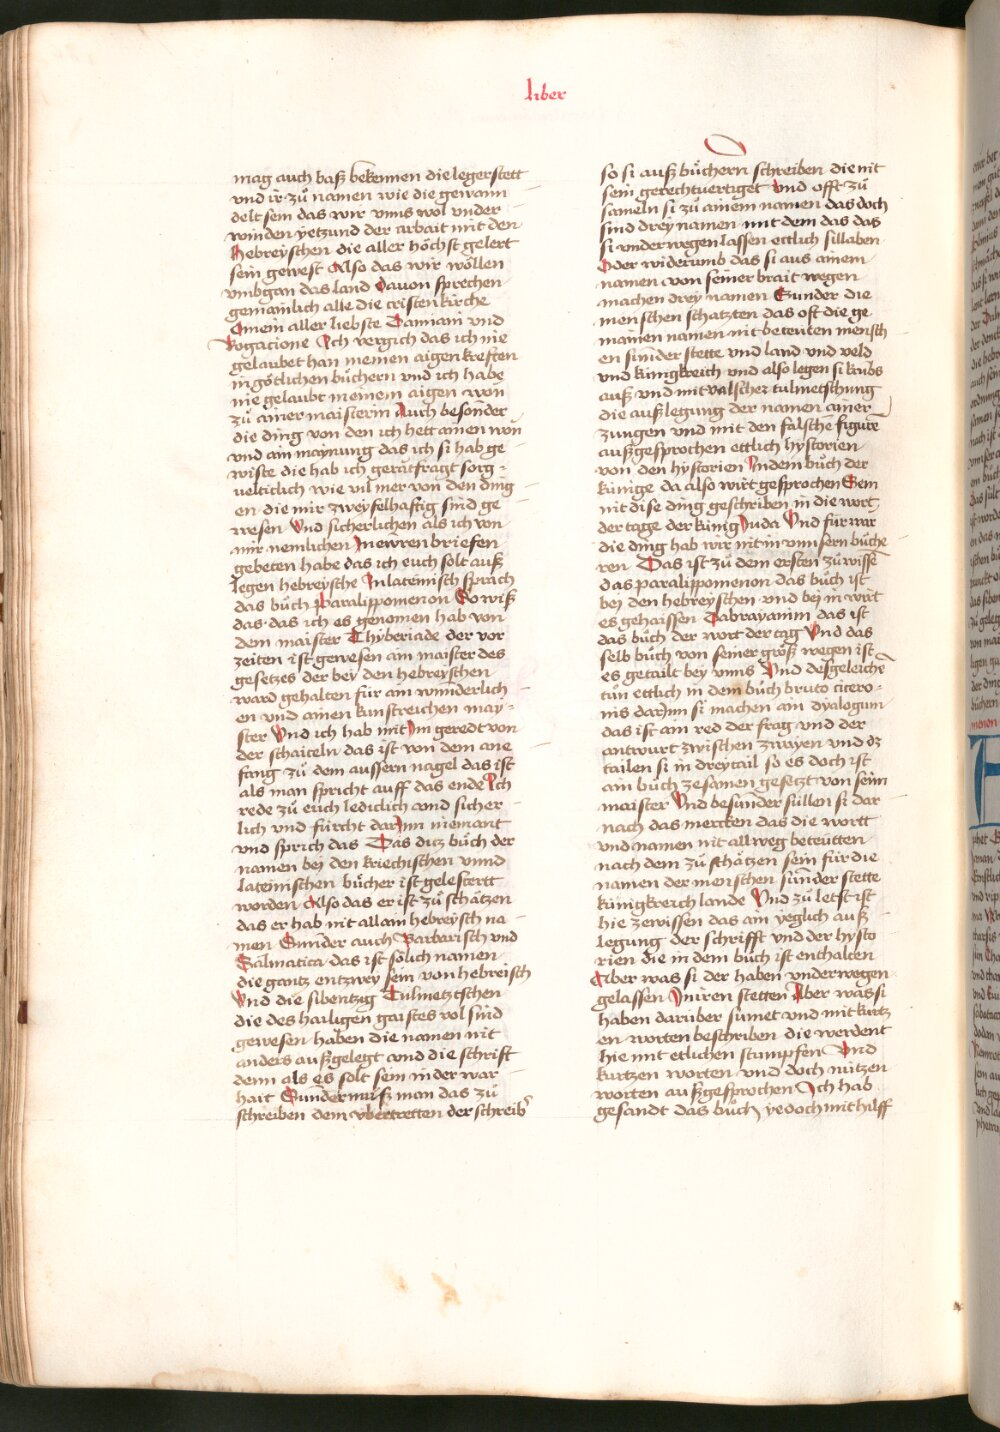 liber
mag auch baß bekennen die legerstett
vnd ir zů namen wie die gewann
delt sein das wir vnns wol vnder
winden yetzund der arbait mit den
Hebreyschen die aller höchst gelert
sein gewest Also das wir wöllen
vmbgan das land Dauon sprechen
gemainlich alle die cristen kirche
O mein aller liebste Damiam vnd
Rogacione Ich vergich das ich nie
gelaubet han meinen aigen kreften
in götlichen bůchern vnd ich habe
nie gelaubt meinem aigen won
zů ainer maisterin Auch besonder
die ding von den ich hett ainen won
vnd ain maynung das ich si hab ge
wiste die hab ich gerätfragt sorg
veltiklich wie vil mer von den ding
en die mir zweyfelhaftig sind ge
wesen Vnd sicherlichen als ich von
mir nemlichen In ewren briefen
gebeten habe das ich euch solt auß
legen hebreysche In lateinisch sprach
das bůch Paralippomenon So wiß
das das ich es genomen hab von
dem maister Thyberiade der vor
zeiten ist gewesen ain maister des
gesetzes der bey den hebreyschen
ward gehalten für ain wunderlich
en vnd ainen kunstreichen may
ster Vnd ich hab mit Im geredt von
der schaiteln das ist von dem ane
fang zů dem aussern nagel das ist
als man spricht auff das ende Ich
rede zů euch lediclich vnd sicher
lich vnd fürcht darInn niemant
vnd sprich das Das ditz bůch der
namen bei den kriechischen vnnd
lateinischen bůcher ist gelestertt
worden Also das er ist zů schätzen
das er hab nit allain hebreysch na
men Sunder auch Barbarisch vnd
Salmatica das ist sölich namen
die gantz entzwey sein von hebreisch
Vnd die sibentzig Tulmetzschen
die des hailigen gaistes vol sind
gewesen haben die namen nit
anders außgelegt vnd die schrift
denn als es solt sein in der war
hait Sunder můß man das zů
schreiben dem vbertretten der schreib
so si auß bůchern schreiben die nit
sein gerechtuertiget Vnd offt zů
sameln si zů ainem namen das doch
sind drey namen mit dem das das
si vnderwegen lassen ettlich sillaben
Oder widerumb das si aus ainem
namen von seiner brait wegen
machen drey namen Sunder die
menschen schatzten das oft die ge
mainen namen nit beteuten mensch
en sunder stette vnd land vnd veld
vnd künigkreich vnd also legen si
auß vnd mit valscher tulmetschung
die außlegung der namen ainer
zungen vnd mit den falsche figurē
außgesprochen ettlich hystorien
von den hystorien In dem bůch der
künige da also wirt gesprochen Sein
nit dise ding geschriben in die wort
der tage der künig Juda Vnd für war
die ding hab wir nit in vnnsern büche
ren Das ist zů dem ersten zů wissē
das paralippomenon das bůch ist
bei den hebreyschen vnd bei in wirt
es gehaissen Dabrayamim das ist
das bůch der wort der tag Vnd das
selb bůch von seiner größ wegen ist
es getailt bey vnns Vnd desgeleichē
tůn ettlich in dem bůch bruto cicero
nis darInn si machen ain dyalogum
das ist ain red der frag vnd der
antwurt zwischen zwayen vnd dz
tailen si in drey tail so es doch ist
ain bůch zesamen gesetzt von seim
maister Vnd besunder süllen si dar
nach das mercken das die wortt
vnd namen nit allweg beteutten
nach dem zů schätzen sein für die
namen der menschen sunder stette
künigkreich lande Vnd zů letst ist
hie ze wissen das ain yeglich auß
legung der schrifft vnd der hysto
rien die in dem bůch ist enthalten
Aber was si der haben vnderwegen
gelassen In iren stetten Aber was si
haben darüber sumet vnd mit kurtz
en worten beschriben die werdent
hie mit etlichen stumpfen Vnd
kurtzen worten vnd doch nützen
worten außgesprochen Ich hab
gesandt das bůch yedoch mit hilff